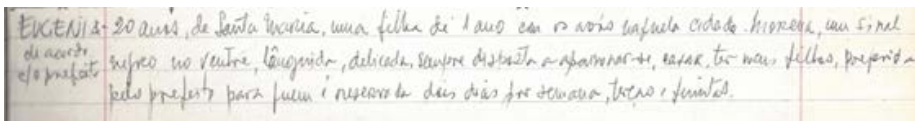 EUGENIA - 20 anos, de Santa Maria, uma filha de 1 ano com os avós naquela cidade. Morena, um sinal
de acordo negro no ventre, lânguida, delicada, sempre disposta a apaixonar-se, casar, ter mais filhos, preferida
c/o prefeito pelo prefeito para quem é reservada dois dias por semana, terças e quintas.